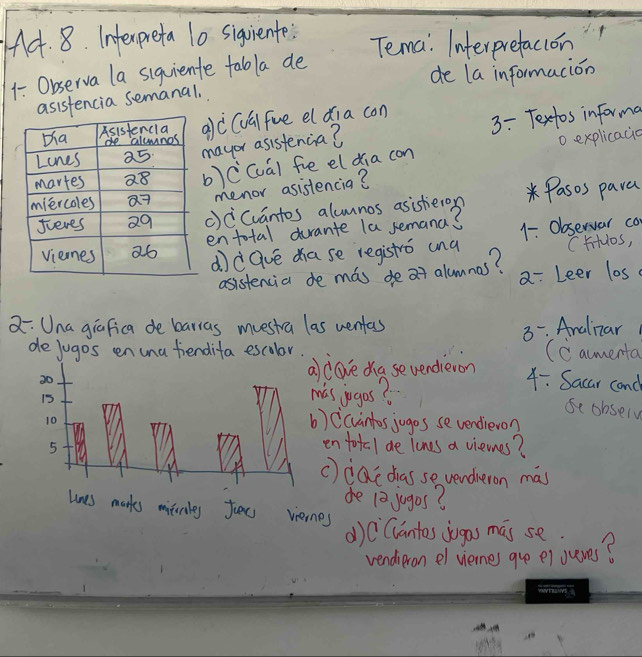 Act. 8. Interpreta lo siguiente:
1-. Observa la siguiente tabla de
asistencia semanal.
Día Asistencia de alumnos
Lunes 25
martes 28
miércoles 27
Jueves 29
Viernes 26
a) ¿Cuál fue el día con
mayor asistencia?
b) ¿Cuál fue el día con
menor asistencia?
c) ¿Cuántos alumnos asistieron
en total durante la semana?
d) ¿Qué día se registró una
asistencia de más de 27 alumnos?
Tema: Interpretación
de la información
3-. Textos informa
o explicacio
* Pasos para
1-. Observar co
(títulos,
2-. Leer los
3-. Analizar
(¿ aumenta
4-. Sacar concl
se observ
2-. Una gráfica de barras muestra las ventas
de jugos en una tiendita escolar.
20
15
10
5
Lunes martes miércoles Jueves Viernes
a) ¿Qué día se vendieron
más jugos?
b) ¿Cuántos jugos se vendieron
en total de lunes a viernes?
c) ¿Qué días se vendieron más
de 12 jugos?
d) ¿Cuántos jugos más se
vendieron el viernes que el jueves?
SANTILLANA